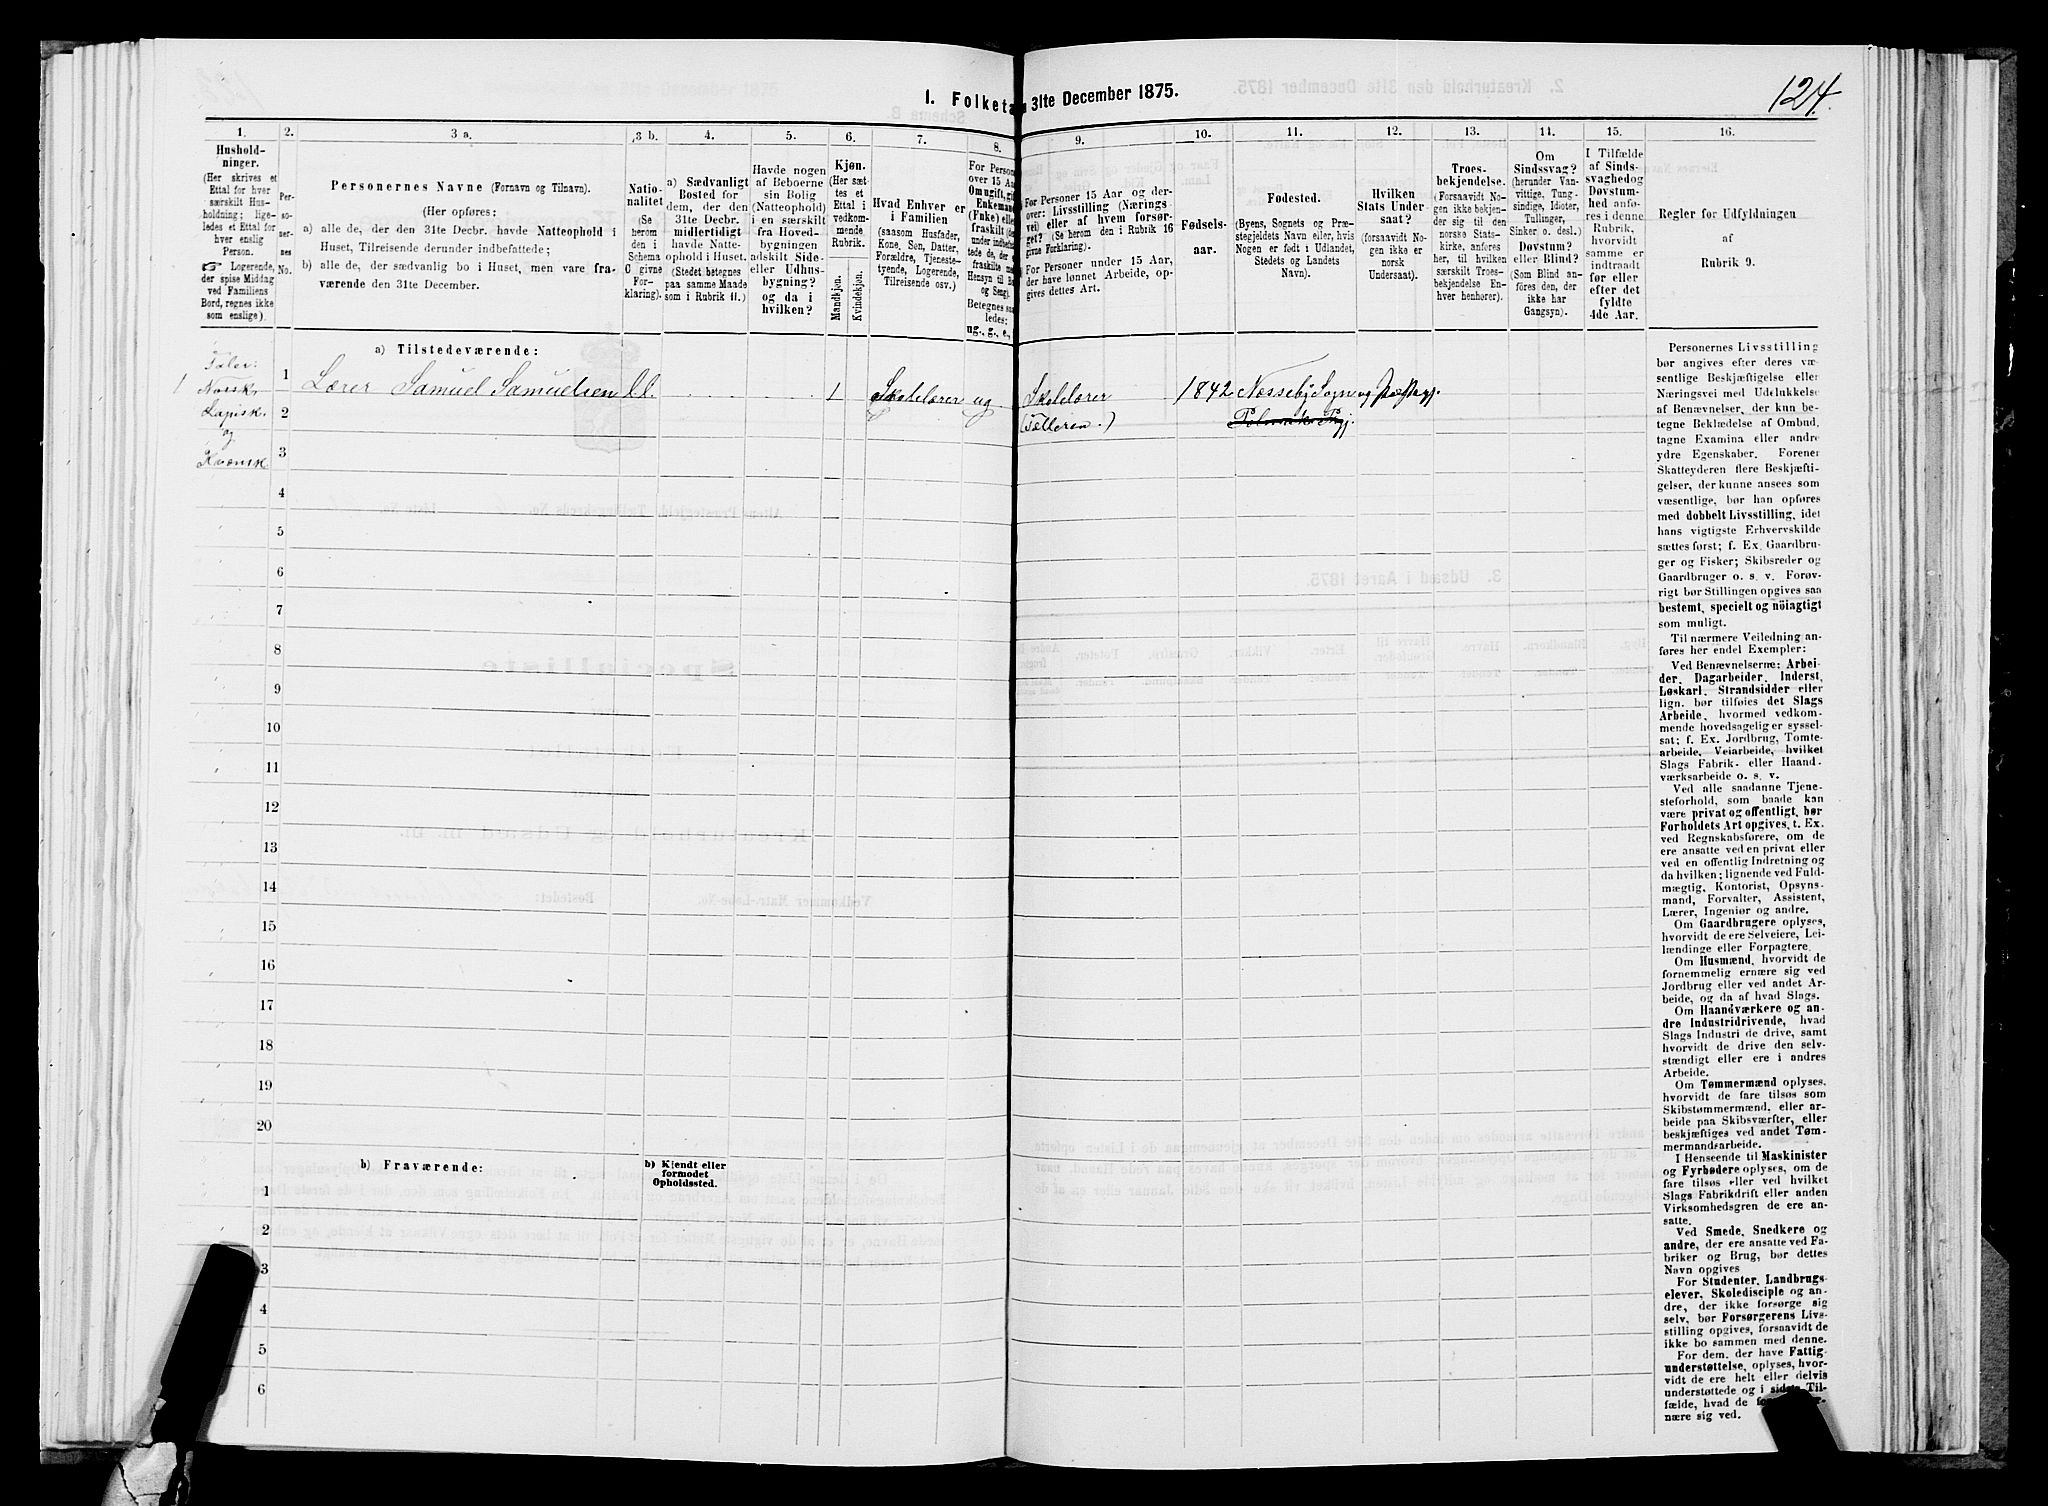 124.
I. Folketa
31te December 1875.
1.
2.
3 a.
3 b.
4.
5.
6.
7.
8.
9.
10.
11.
12.
13.
14.
15.
16.
Hushold-
ninger.
(Her skrives et
Ettal for hver
særskilt Hus-
holdning; lige-
ledes et Ettal for
hver enslig
Person.
☞ Logerende,
der spise Middag
ved Familiens
Bord, regnes ikke
som enslige).
Per-
so-
ner-
nes
No.
Personernes Navne (Fornavn og Tilnavn).
(Her opføres:
a) alle de, der den 31te Decbr. havde Natteophold i
Huset, Tilreisende derunder indbefattede;
b) alle de, der sædvanlig bo i Huset, men vare fra-
værende den 31te December.
Natio-
nalitet
(Se
herom
den i
Schema
C givne
For-
klaring).
a) Sædvanligt
Bosted for
dem, der den
31te Decbr.
midlertidigt
havde Natte-
ophold i Huset.
(Stedet betegnes
paa samme Maade
som i Rubrik 11.)
Havde nogen
af Beboerne
sin Bolig
(Natteophold)
i en særskilt
fra Hoved-
bygningen
adskilt Side-
eller Udhus-
bygning?
og da i
hvilken?
Kjøn.
(Her sæt-
tes et
Ettal i
vedkom-
mende
Rubrik.
Mandkjøn.
Kvindekjøn.
Hvad Enhver er
i Familien
(saasom Husfader,
Kone, Søn, Datter,
Forældre, Tjeneste-
tyende, Logerende,
Tilreisende osv.).
For Person
over 15 Aa
Omugift, gif
Enkeman
(Enke) elle
fraskilt (der
Betegnes saa
ledes:
ug., g., e.,
For Personer 15 Aar og der-
over: Livsstilling (Nærings-
vei) eller af hvem forsør-
get? (Se herom den i Rubrik 16
givne Forklaring).
For Personer under 15 Aar,
der have lønnet Arbeide, op-
gives dettes Art.
Fødsels-
aar.
Fødested.
(Byens, Sognets og Præ-
stegjeldets Navn eller, hvis
Nogen er født i Udlandet,
Stedets og Landets
Navn).
Hvilken
Stats Under-
saat?
(forsaavidt No-
gen ikke er
norsk
Undersaat).
Troes-
bekjendelse.
(Forsaavidt No-
gen ikke bekjen-
der sig til den
norske Stats-
kirke, anføres
her, til hvilken
særskilt Troes-
bekjendelse En-
hver henhører).
Om
Sindssvag?
(herunder Van-
vittige, Tung-
sindige, Idioter,
Tullinger,
Sinker o. desl.).
Døvstum?
eller Blind?
(Som Blind an-
føres den, der
ikke har
Gangsyn).
I Tilfælde
af Sinds-
svaghed og
Døvstum-
hed anfø-
res i denne
Rubrik,
hvorvidt
samme er
indtraadt
før eller
efter det
fyldte
4de Aar.
Regler for Udfyldningen
af
Rubrik 9.
a) Tilstedeværende:
Taler:
1 Norsk, 1 Lærer Samuel Samuelsen l.l. 1 Skolelærer ug Skolelærer 1842 Næsseby Sogn og Præstegj.
Lapisk 2 (Tælleren.) Polmak Pgj.
og
Kvænsk 3
4
5
6
7
8
9
10
11
12
13
14
15
16
17
18
19
20
b) Fraværende:
b) Kjendt eller
formodet
Opholdssted.
1
2
3
4
5
6
Personernes Livsstilling
bør angives efter deres væ-
sentlige Beskjæftigelse eller
Næringsvei med Udelukkelse
af Benævnelser, der kun be-
tegne Beklædelse af Ombud,
tagne Examina eller andre
ydre Egenskaber. Forener
Skatteyderen flere Beskjæfti-
gelser, der kunne ansees som
væsentlige, bør han opføres
med dobbelt Livsstilling, idet
hans vigtigste Erhvervskilde
sættes først; f. Ex. Gaardbru-
ger og Fisker; Skibsreder og
Gaardbruger o. s. v. Forøv-
rigt bør Stillingen opgives saa
bestemt, specielt og nöiagtigt
som muligt.
Til nærmere Veiledning an-
føres her endel Exempler:
Ved Benævnelserne: Arbei-
der, Dagarbeider, Inderst,
Løskarl, Strandsidder eller
lign. bør tilføies det Slags
Arbeide, hvormed vedkom-
mende hovedsagelig er syssel-
sat; f. Ex. Jordbrug, Tomte-
arbeide, Veiarbeide, hvilket
Slags Fabrik- eller Haand-
værksarbeide o. s. v.
Ved alle saadanne Tjene-
steforhold, som baade kan
være privat og offentligt, bør
Forholdets Art opgives, t. Ex.
ved Regnskabsførere, om de
ere ansatte ved en privat eller
ved en offentlig Indretning og
da hvilken; lignende ved Fuld-
mægtig, Kontorist, Opsyns-
mand, Forvalter, Assistent,
Lærer, Ingeniør og andre.
Om Gaardbrugere oplyses,
hvorvidt de ere Selveiere, Lei-
lændinge eller Forpagtere.
Om Husmænd, hvorvidt de
fornemmelig ernære sig ved
Jordbrug eller ved andet Ar-
beide, og da af hvad Slags.
Om Haandværkere og an-
dre Industridrivende, hvad
Slags Industri de drive, samt
hvorvidt de drive den selv-
stændigt eller ere i andres
Arbeide.
Om Tømmermænd oplyses,
hvorvidt de fare tilsøs som
Skibstømmermænd, eller ar-
beide paa Skibsværfter, eller
beskjæftiges ved andet Tøm-
mermandsarbeide.
I Henseende til Maskinister
og Fyrbødere oplyses, om de
fare tilsøs eller ved hvilket
Slags Fabrikdrift eller anden
Virksomhedsgren de ere an-
satte.
Ved Smede, Snedkere og
andre, der ere ansatte ved Fa-
briker og Brug, bør dettes
Navn opgives
For Studenter, Landbrugs-
elever, Skoledisciple og an-
dre, der ikke forsørge sig
selv, bør Forsørgerens Livs-
stilling opgives, forsaavidt de
ikke bo sammen med denne.
For dem, der have Fattig-
understøttelse, oplyses, hvor-
vidt de ere helt eller delvis
understøttede og i sidste Til-
fælde, hvad de
nære sig ved.